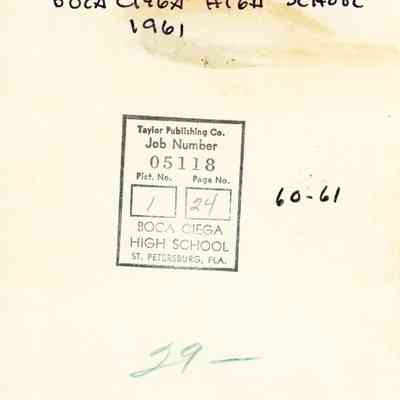 BOCA CIEGA HIGH SCHOOL
1961
Taylor Publishing Co.
Job Number
05118
Pict. No. Page No.
1 24
BOCA CIEGA
HIGH SCHOOL
ST. PETERSBURG, FLA.
60-61
29—